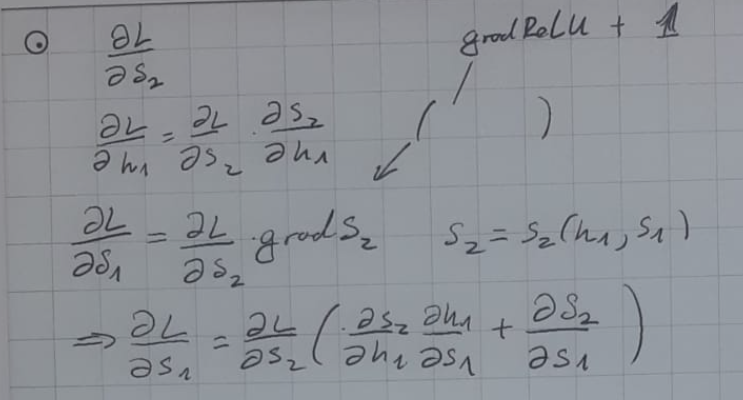 ⊙ ∂L/∂S₂ gradReLU + 1
∂L/∂h₁ = ∂L/∂S₂ · ∂S₂/∂h₁ ( )
∂L/∂S₁ = ∂L/∂S₂ · grad S₂ S₂ = S₂(h₁, S₁)
⇒ ∂L/∂S₁ = ∂L/∂S₂ ( ∂S₂/∂h₁ ∂h₁/∂S₁ + ∂S₂/∂S₁ )